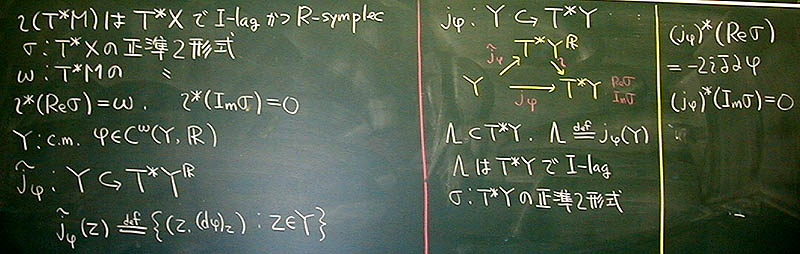 ι(T*M)はT*XでI-lagかつR-symplec
σ:T*Xの正準2形式
ω:T*Mの 〃
ι*(Reσ)=ω. ι*(Imσ)=0
Y:c.m. φ∈C^ω(Y,ℝ)
j̃φ:Y↪T*Y^ℝ
j̃φ(z) def= {(z,(dφ)z);z∈Y}
jφ:Y↪T*Y
T*Y^ℝ
j̃φ ι
Y → T*Y Reσ Imσ
jφ
Λ⊂T*Y. Λ def= jφ(Y)
ΛはT*YでI-lag
σ:T*Yの正準2形式
(jφ)*(Reσ)
=-2i∂̄∂φ
(jφ)*(Imσ)=0